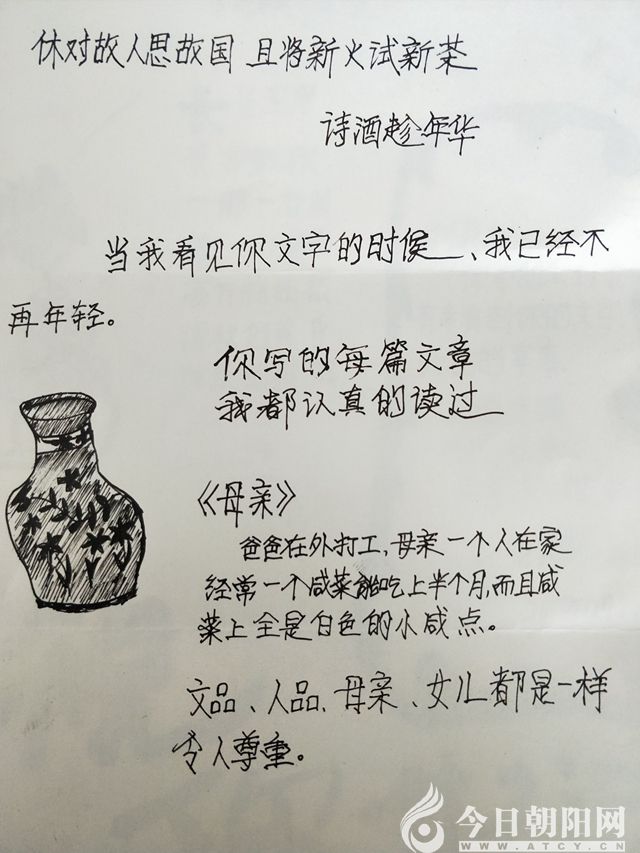 休对故人思故国 且将新火试新茶
诗酒趁年华
当我看见你文字的时候、我已经不
再年轻。
你写的每篇文章
我都认真的读过
《母亲》
爸爸在外打工,母亲一个人在家
经常一个咸菜能吃上半个月,而且咸
菜上全是白色的小咸点。
文品、人品、母亲、女儿都是一样
令人尊重。
今日朝阳网
WWW.ATCY.CN